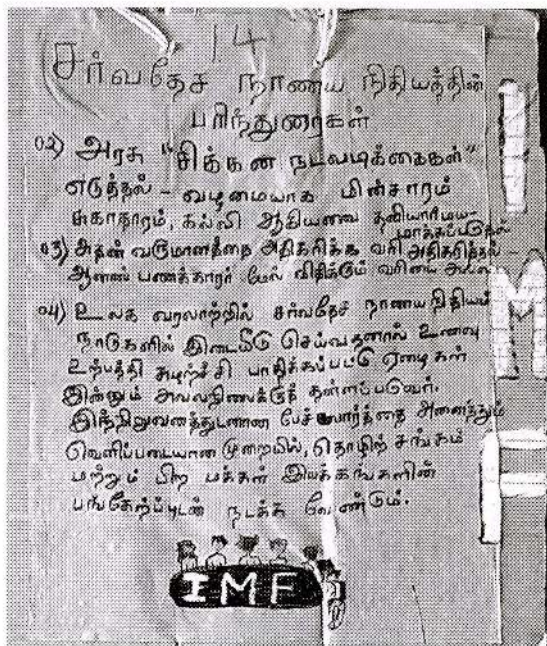 14
சர்வதேச நாணய நிதியத்தின்
பரிந்துரைகள்
02) அரசு "சிக்கன நடவடிக்கைகள்"
எடுத்தல் - வழமையாக மின்சாரம்
சுகாதாரம், கல்வி ஆகியனவை தனியார்மய-
மாக்கப்படுதல்
03) அதன் வருமானத்தை அதிகரிக்க வரி அதிகரித்தல் -
ஆனால் பணக்காரர் மேல் விதிக்கும் வரியை அல்ல
04) உலக வரலாற்றில் சர்வதேச நாணய நிதியம்
நாடுகளில் இடையீடு செய்வதனால் உணவு
உற்பத்தி சுழற்சி பாதிக்கப்பட்டு ஏழைகள்
இன்னும் அவலநிலைக்குத் தள்ளப்படுவர்.
இந்நிறுவனத்துடனான பேச்சுவார்த்தை அனைத்தும்
வெளிப்படையான முறையில், தொழிற் சங்கம்
மற்றும் பிற மக்கள் இயக்கங்களின்
பங்கேற்புடன் நடக்க வேண்டும்.
IMF
IMF